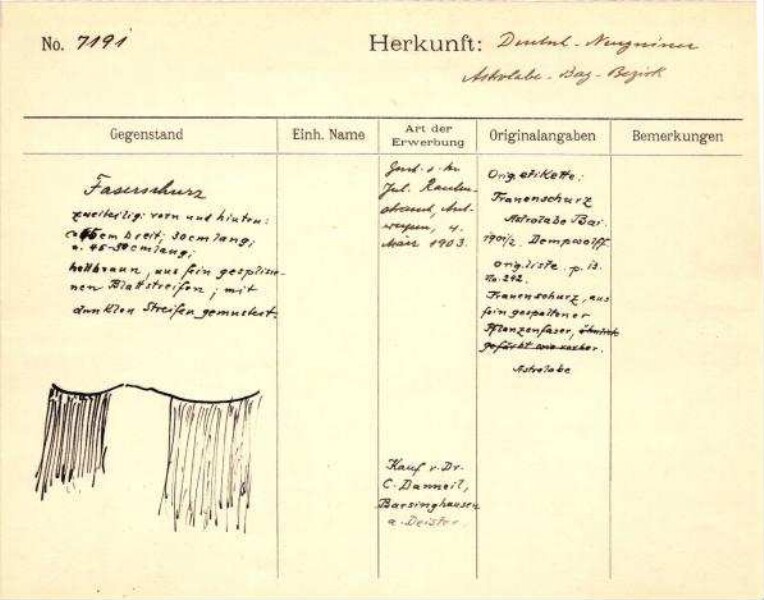 No. 7191
Herkunft: Deutsch-Neuguinea
Astrolabe-Bay-Bezirk
Gegenstand
Einh. Name
Art der
Erwerbung
Originalangaben
Bemerkungen
Faserschurz
zweiteilig: vorn und hinten:
breit; 30cm lang;
u. 45-50cm lang;
hellbraun, aus fein gesplisse-
nen Blattstreifen; mit
dunklen Streifen gemustert.
Jul.
4.
März 1903.
Kauf v. Dr.
C. Danneil,
Barsinghausen
a. Deister.
Orig. etikette:
Frauenschurz
Astrolabe Bai.
1901/2. Dempwolff
orig. liste. p. 13.
No. 242.
Frauenschurz, aus
fein gespaltener
Pflanzenfaser, ähnlich
gefärbt wie vorher.
Astrolabe